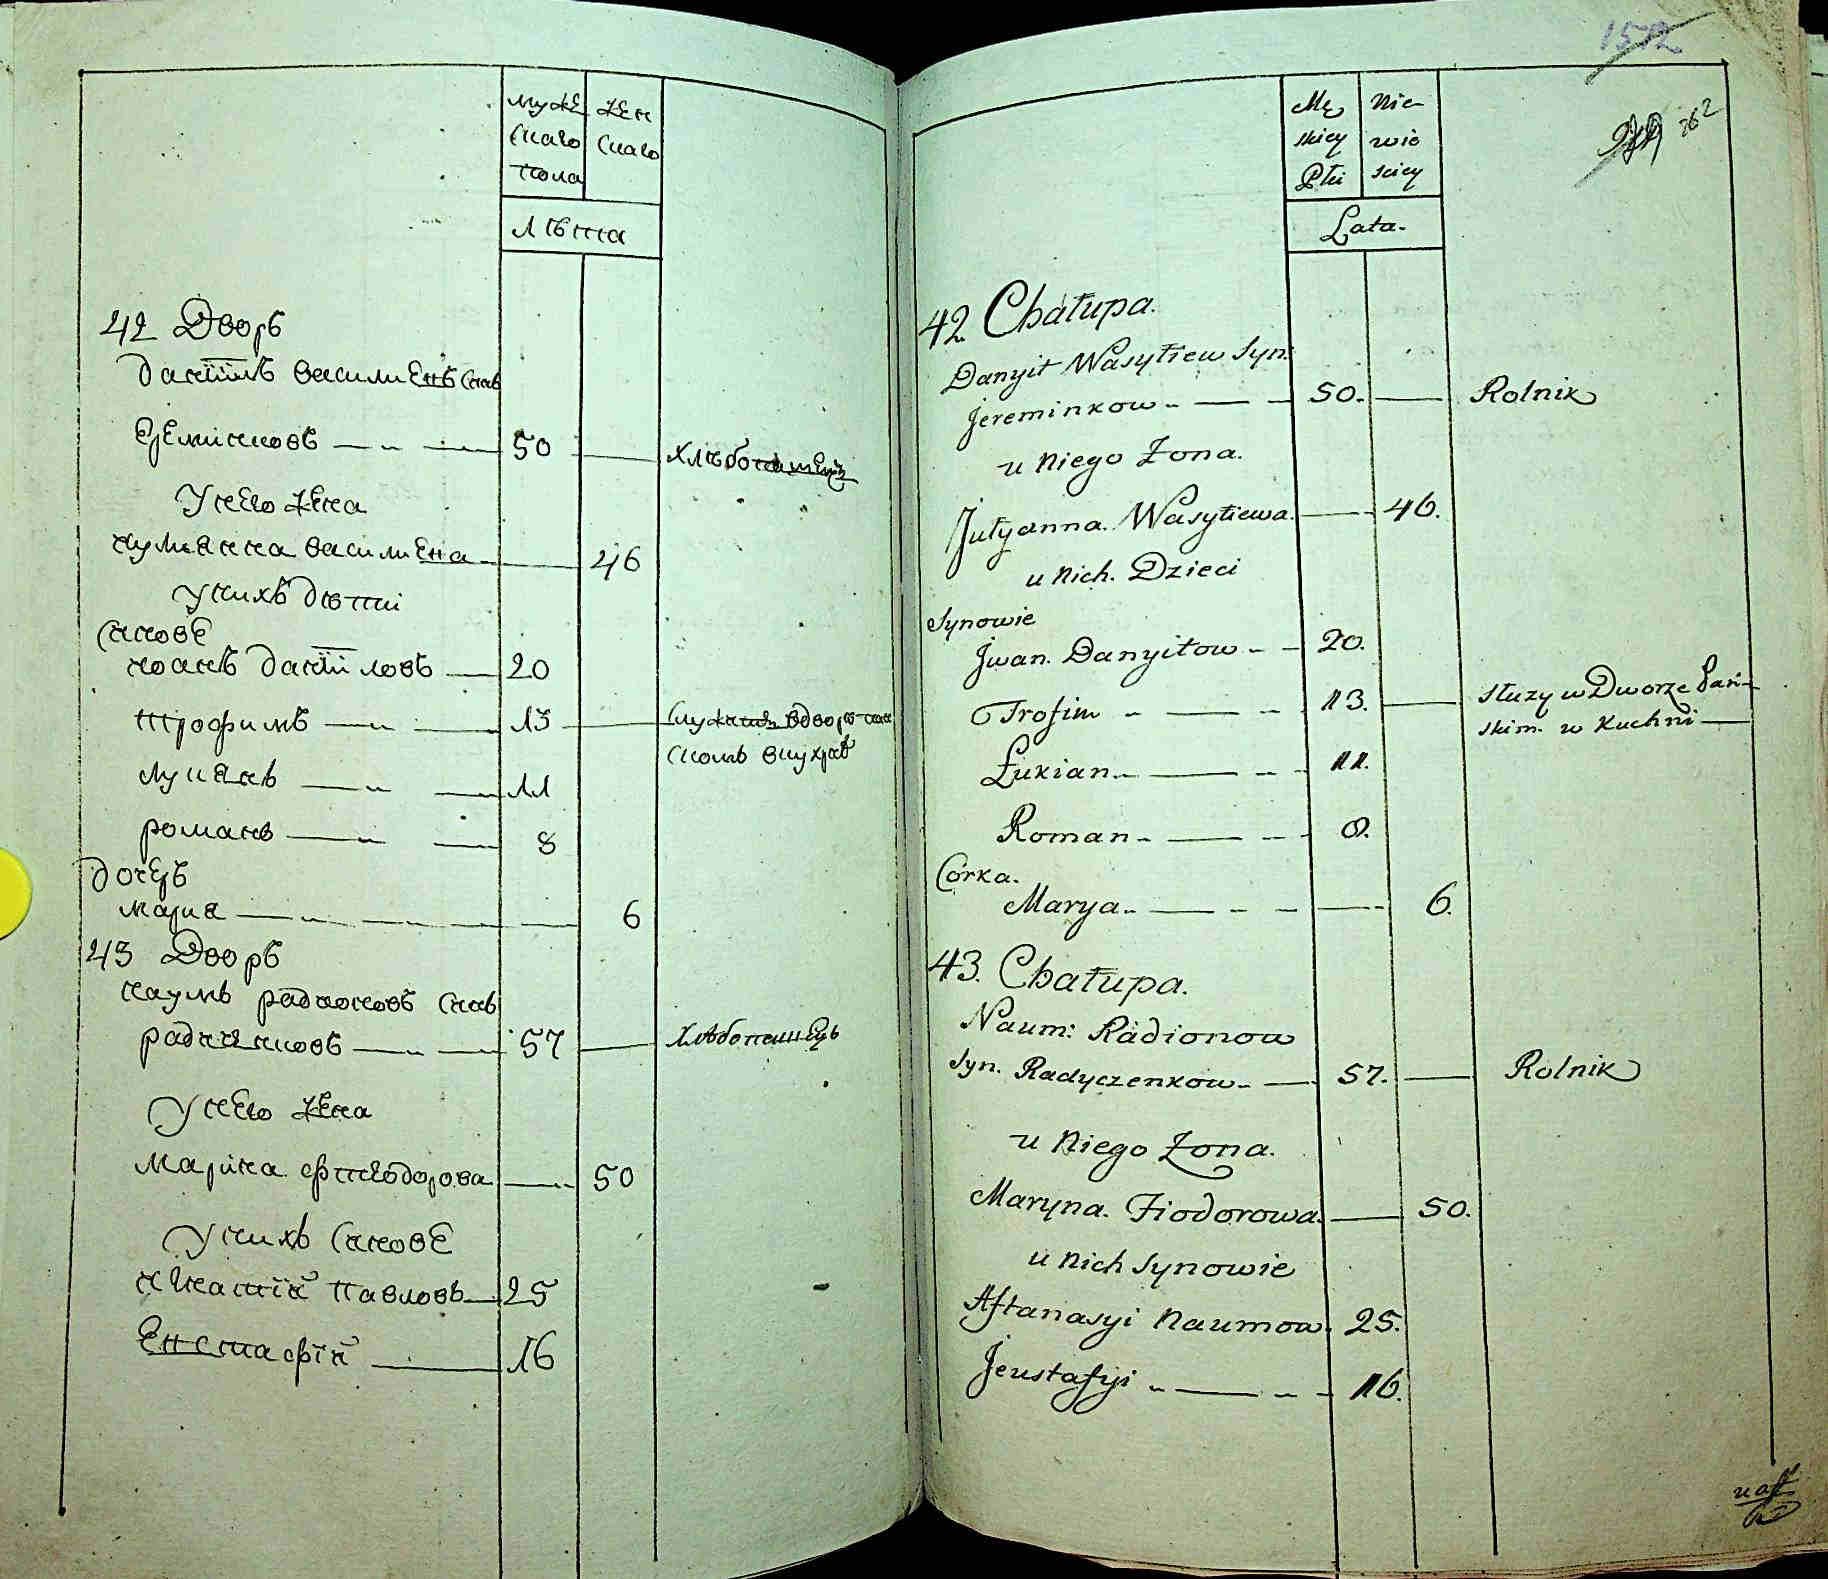 муже
ского
пола
жен
ского
лѣта
42 Дворъ
данїилъ василиевъ снъ
Еремѣнковъ 50 хлѣбопашецъ
У него жена
иулиянна василиева 46
у нихъ дѣти
сновѣ
иоанъ данїиловъ 20
трофимъ 13 служитъ вдворѣ пан
скомъ вкухнѣ
лукиянъ 11
романъ 8
дочерь
мария 6
43 Дворъ
наумъ радионовъ снъ
радиченковъ 57 хлѣбопашецъ
У него жена
Марина фтеодорова 50
У нихъ сновѣ
павловъ 25
Евстафїй 16
1572
262
Mę
skiey
Płci
Nie
wie
sciey
Lata.
42. Chałupa.
Danyił Wasyłiew Syn.
Jereminkow 50. Rolnik
u Niego Zona.
Jułyanna. Wasyłiewa. 46.
u Nich. Dzieci
Synowie
Jwan. Danyiłow 20.
Trofim 13. słuzy w Dworze Pań-
skim. w Kuchni
Łukian 11.
Roman 8.
Córka.
Marya 6.
43. Chałupa.
Naum: Radionow
Syn. Radyczenkow 57. Rolnik
u Niego Zona.
Maryna. Fiodorowa. 50.
u Nich Synowie
Aftanasyi Naumow. 25.
Jeustafyi 16.